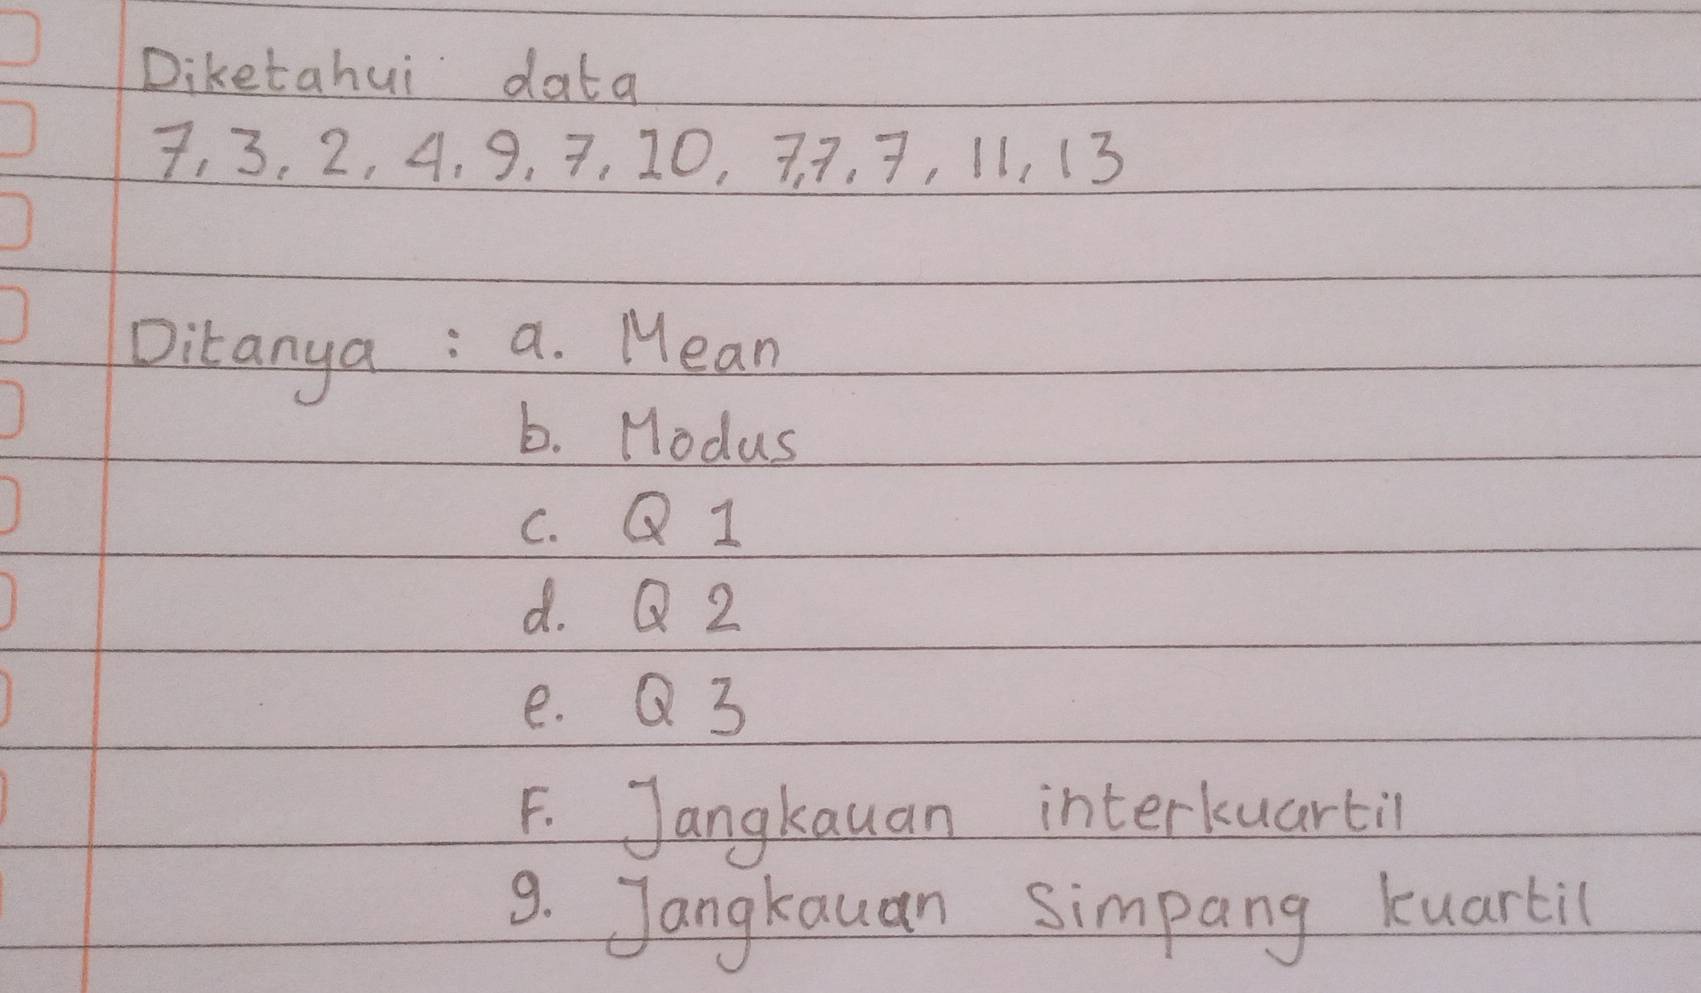 Diketahui data
7, 3, 2, 4, 9, 7, 10, 7,7, 7, 11, 13
Ditanya : a. Mean
b. Modus
c. Q 1
d. Q 2
e. Q 3
F. Jangkauan interkuartil
g. Jangkauan Simpang kuartil